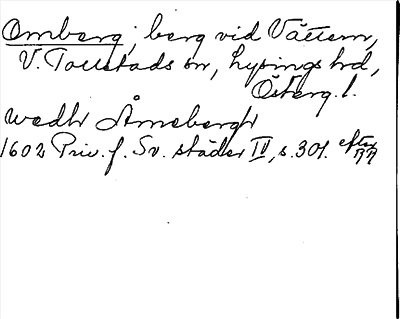 Omberg, berg vid Vättern,
V. Tollstads sn, Lysings hd,
Österg. l.
wedh Åmebergh
1602 Priv. f. Sv. städer IV, s. 301. efter